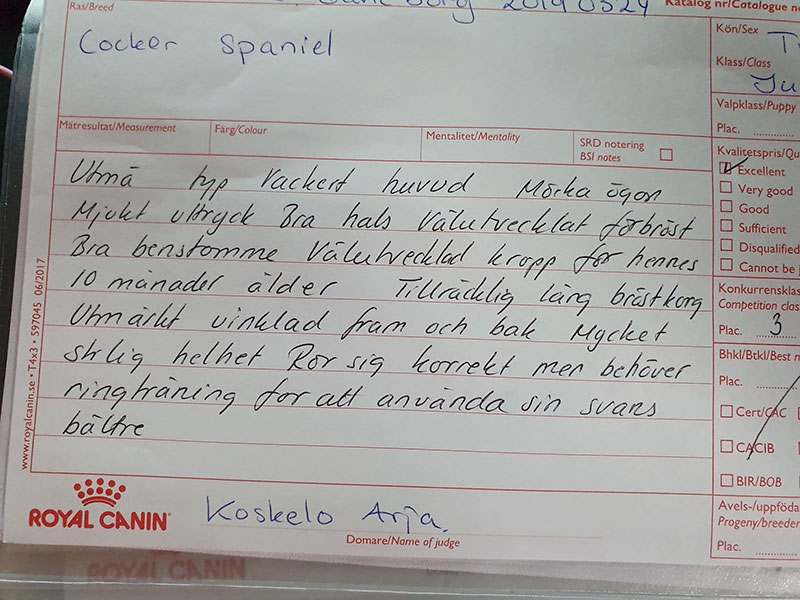 borg 20190324 Katalog nr/Catalogue n
Ras/Breed
Cocker Spaniel
Kön/Sex
T
Klass/Class
Ju
Valpklass/Puppy
Plac.
Mätresultat/Measurement Färg/Colour Mentalitet/Mentality SRD notering
BSI notes
Utmä typ Vackert huvud Mörka ögon
Mjukt uttryck Bra hals Välutvecklat förbröst
Bra benstomme Välutvecklad kropp för hennes
10 månader ålder Tillräcklig lång bröstkorg
Utmärkt vinklad fram och bak Mycket
stilig helhet Rör sig korrekt men behöver
ringträning för att använda sin svans
bättre
Kvalitetspris/Qu
Excellent
Very good
Good
Sufficient
Disqualified
Cannot be
Konkurrensklas
Competition clas
Plac. 3
Bhkl/Btkl/Best
Plac.
Cert/CAC
CACIB
BIR/BOB
Avels-/uppföda
Progeny/breeder
Plac.
www.royalcanin.se • T4x3 • 597045 06/2017
ROYAL CANIN
Koskelo Arja.
Domare/Name of judge
ROYAL CANIN